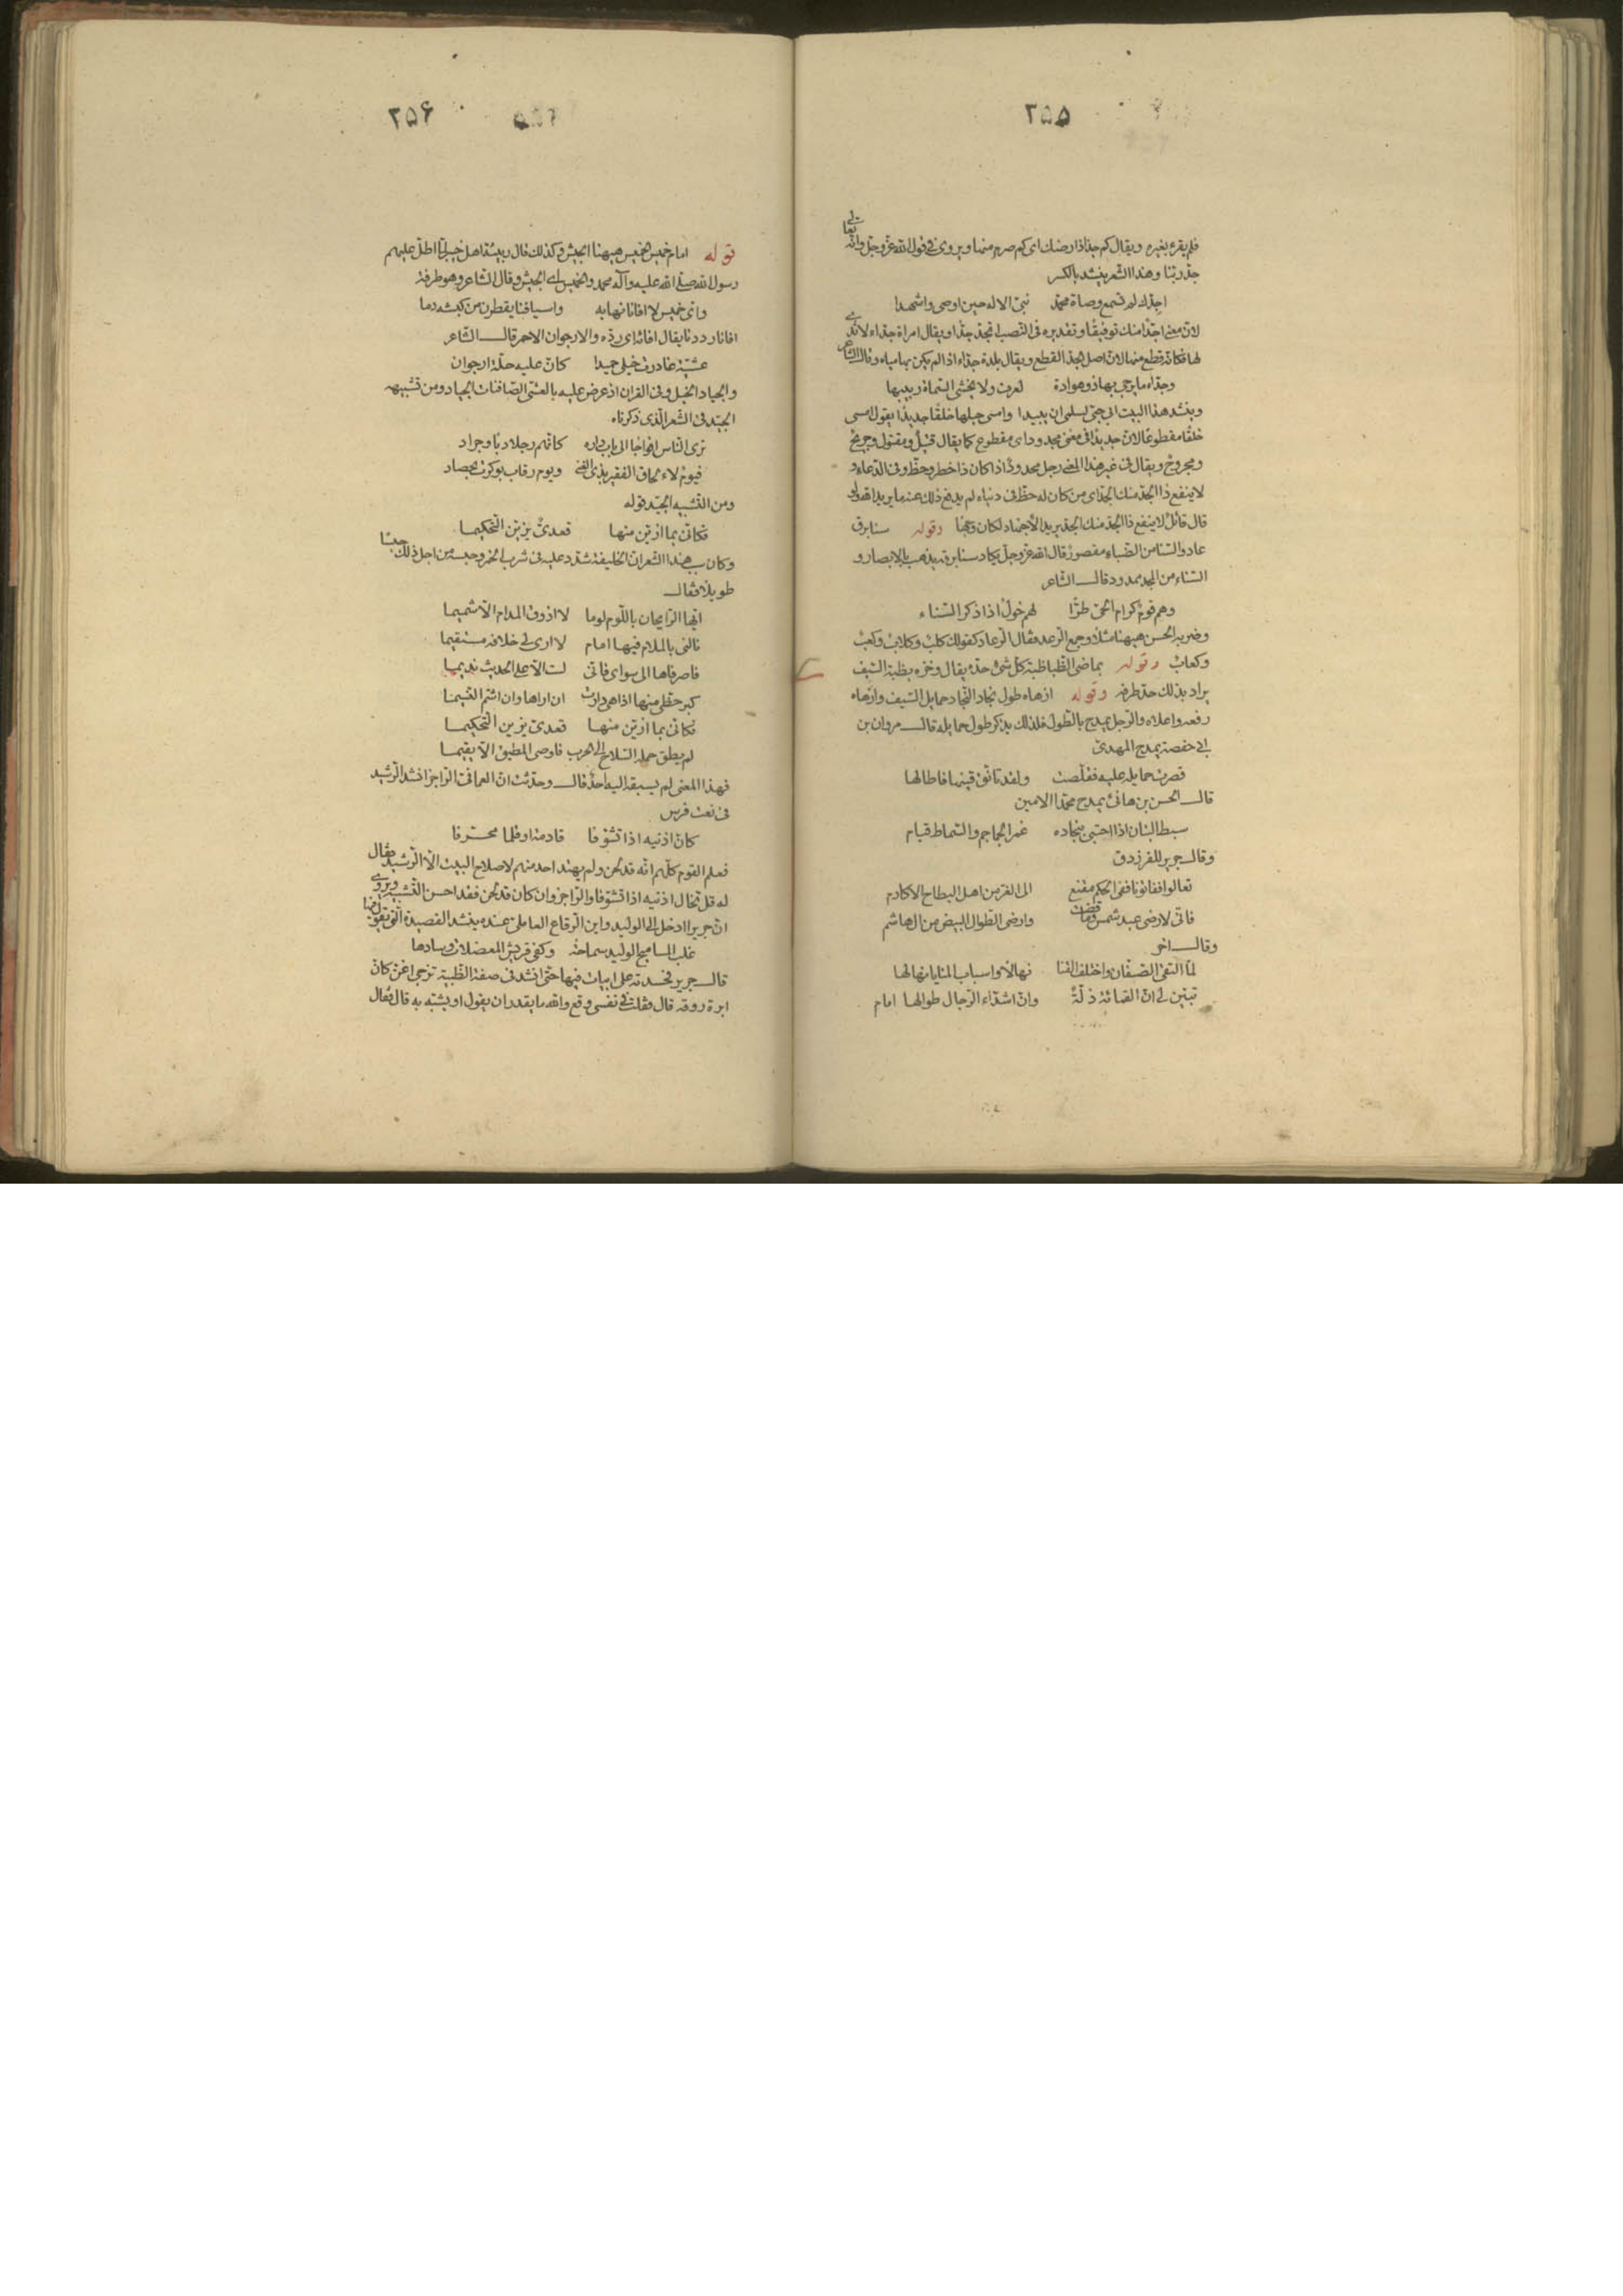 ٢۵۵
فلم يقرء بغيره ويقال كم جذاذ ارضك اى كم صرم منها ويروى فى قول الله عز وجل وانه تعالى
جد ربنا وهذا الشعر ينشد بالكسر
اجدك لم تسمع وصاة محمد نبى الاله حين اوصى واشهدا
لان معنى اجدا منك توقيفا وتقديره فى النصب اتجد جدا ويقال امراة جداء لا ثدى
لها فكانه قطع منها لان اصل الجد القطع ويقال بلدة جداء اذا لم يكن بها مياه وقال الشاعر
وجداء ما يرجى بها ذو هوادة لعرف ولا يخشى السماة ربيبها
وينشد هذا البيت ابى حبى لسلمى ان يبيدا وامسى حبلها خلقا جديدا يقول امسى
خلقا مقطوعا لان جديدا فى معنى مجدود اى مقطوع كما يقال قتيل ومقتول وجريح
ومجروح ويقال فى غير هذا المعنى رجل مجدود اذا كان ذا خطر وحظ وفى الدعاء و
لا ينفع ذا الجد منك الجد اى من كان له حظ فى دنياه لم يدفع ذلك عنه ما يريد الله ولو
قال قائل لا ينفع ذا الجد منك الجد يريد الاجتهاد لكان وجها وقوله سنا برق
عاد والسنا من الضياء مقصور قال الله عز وجل يكاد سنا برقه يذهب بالابصار و
السناء من المجد ممدود قال الشاعر
وهم قوم كرام الحى طرا لهم خول اذا ذكر السناء
وضربه الحسن ههنا مثلا وجمع الرعد فقال الرعاد كقولك كلب وكلاب وكعب
وكعاب وقوله بماضى الظبا ظبة كل شىء حده يقال وخزه بظبة السيف
يراد بذلك حد طرفه وقوله ازهاه طول نجاد النجاد حمايل السيف وازهاه
رفعه واعلاه والرجل يمدح بالطول فلذلك يذكر طول حمايله قال مروان بن
ابى حفصة يمدح المهدى
قصرت حمايله عليه فقلصت ولقد تانق قينها فاطالها
قال الحسن بن هانئ يمدح محمدا الامين
سبط البنان اذا احتبى بنجاده غمر الجماجم والسماط قيام
وقال جرير للفرزدق
تعالوا ففاتونا ففى الحكم مقنع الى الغر من اهل البطاح الاكارم
فانى لارضى عبد شمس وما قضت وارضى الطوال البيض من ال هاشم
وقال اخر
لما التقى الصفان واختلف القنا نهالا واسباب المنايا نهالها
تبين لى ان القماءة ذلة وان اشداء الرجال طوالها امام
٢۵۶
قوله امام خميس الخميس ههنا الجيش وكذلك قال ربيئة اهل خيبر لما اطل عليهم
رسول الله صلى الله عليه وآله محمد والخميس اى الجيش وقال الشاعر وهو طرفة
واى خميس لا افانا نهابه واسيافنا يقطرن من كبشه دما
افانا رددنا يقال افائه اى رده والارجوان الاحمر قال الشاعر
عشية غادرت خيلى حميدا كان عليه حلة ارجوان
والجياد الخيل وفى القران اذ عرض عليه بالعشى الصافنات الجياد ومن تشبيهه
الجيد فى الشعر الذى ذكرناه
ترى الناس افواجا الى باب داره كانهم رجلا دبا وجراد
فيوم لالحاق الفقير بذى الغنى ويوم رقاب بوكرت بحصاد
ومن التشبيه الجيد قوله
فكانى بما ازين منها قعدى يزين التحكيما
وكان سبب هذا الشعر ان الخليفة شدد عليه فى شرب الخمر وحبسه من اجل ذلك حبسا
طويلا فقال
ايها الرايحان باللوم لوما لا اذوق المدام الا شميما
نالنى بالملام فيها امام لا ارى لى خلافه مستقيما
فاصرفاها الى سواى فانى لست الا على الحديث نديما
كبر حظى منها اذا هى دارت ان اراها وان اشم النسيما
فكانى بما ازين منها قعدى يزين التحكيما
لم يطق حمله السلاح الى الحرب فاوصى المطيق الا يقيما
فهذا المعنى لم يسبقه اليه احد قال وحدثت ان العمانى الراجز انشد الرشيد
فى نعت فرس
كان اذنيه اذا تشوفا قادمة او قلما محرفا
فعلم القوم كلهم انه قد لحن ولم يهتد احد منهم لاصلاح البيت الا الرشيد فقال
له قل تخال اذنيه اذا تشوفا والراجز وان كان قد لحن فقد احسن التشبيه ويروى
ان جريرا دخل الى الوليد وابن الرقاع العاملى عنده ينشد القصيدة التى يقول فيها
غلب المساميح الوليد سماحة وكفى قريش المعضلات وسادها
قال جرير فحسدته على ابيات فيها حتى انشد فى صفة الظبية تزجى اغن كان
ابرة روقه قال فقلت فى نفسى وقع والله ما يقدر ان يقول او يشبه به قال فقال